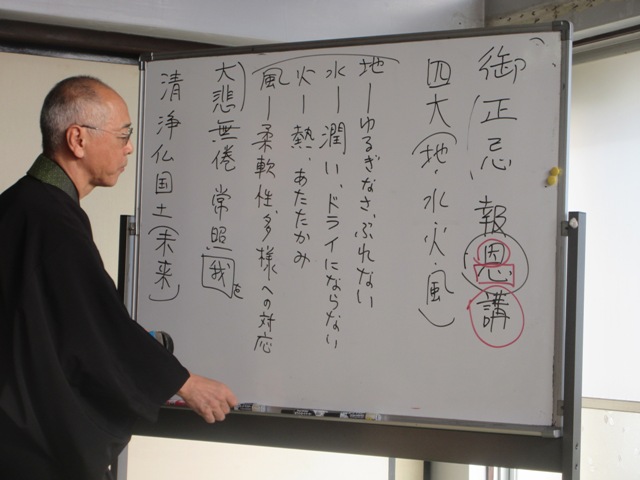 御正忌報恩講
四大(地・水・火・風)
地ーゆるぎなさ、ぶれない
水ー潤い、ドライにならない
火ー熱、あたたかみ
風ー柔軟性、多様への対応
大悲無倦常照我を
清浄仏国土(未来)